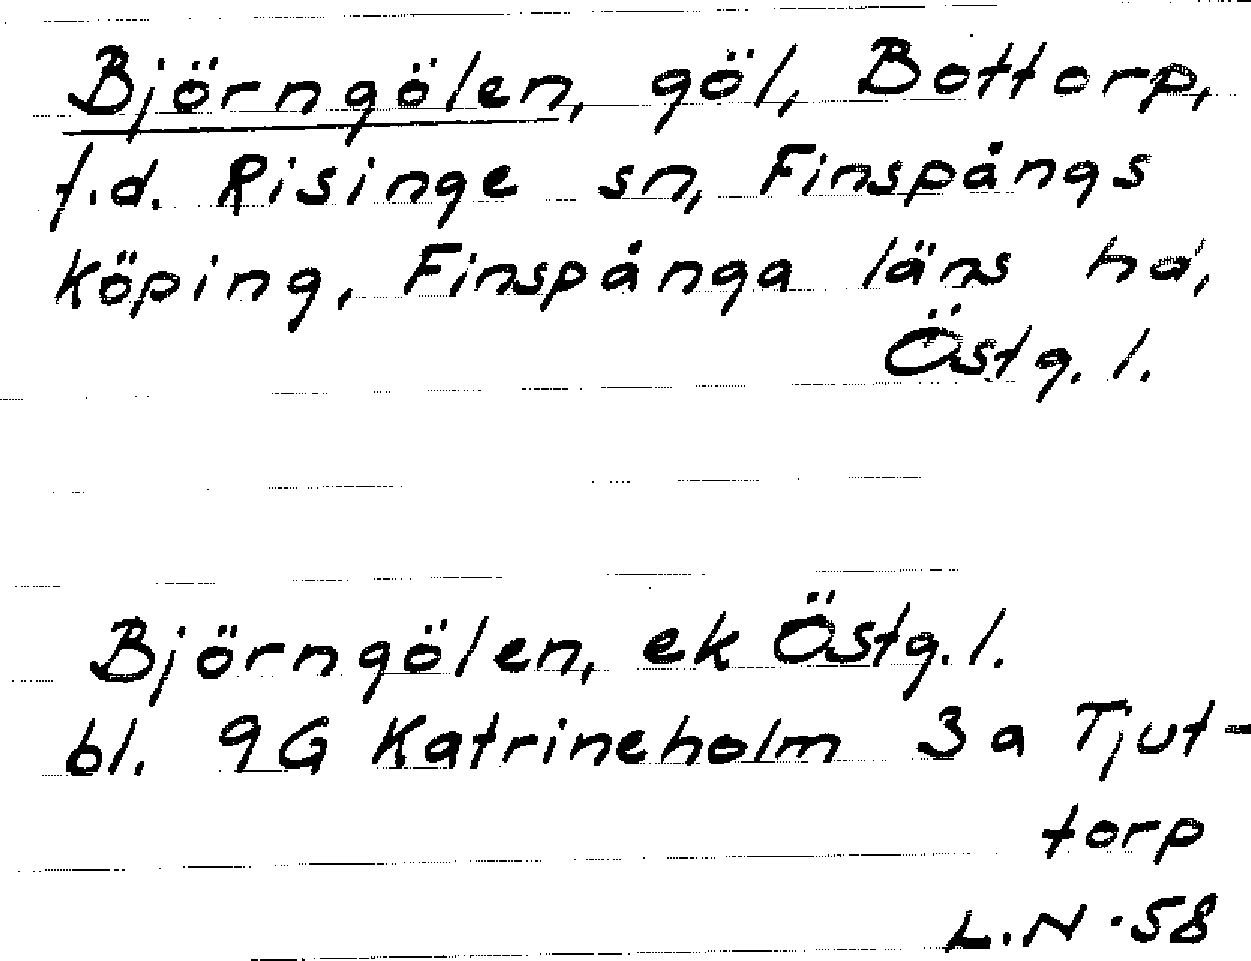 Björngölen, göl, Bottorp,
f.d. Risinge sn, Finspångs
köping, Finspånga läns hd,
Östg. l.
Björngölen, ek Östg. l.
bl. 9G Katrineholm 3a Tjut-
torp
L.N. 58